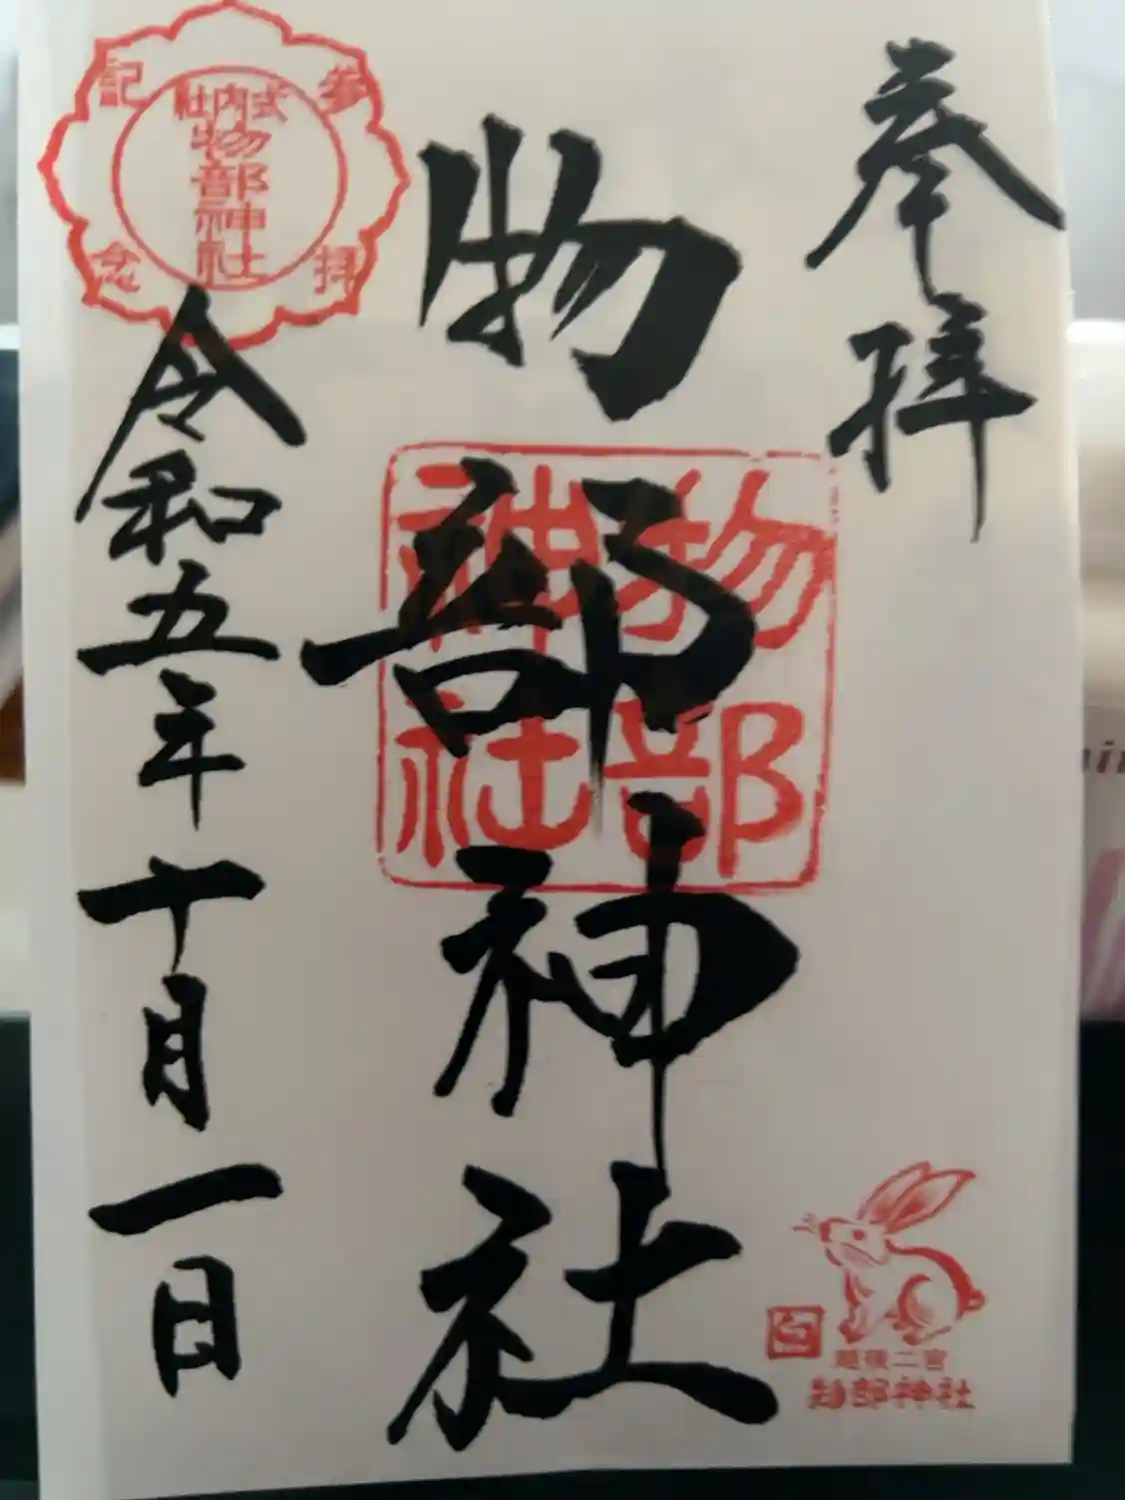 奉拝
物部神社
物部
神社
令和五年十月一日
参拝
記念
式内社
物部神社
越後二宮
物部神社